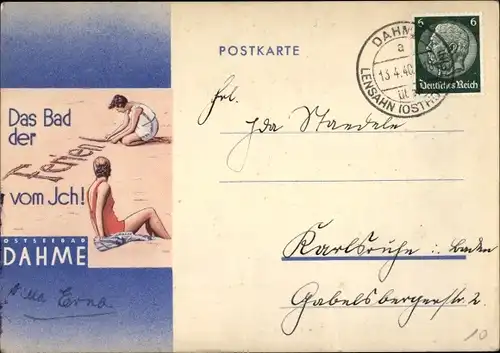 POSTKARTE
DAHME
a
13.4.40
üb
LENSAHN (OSTHOLST)
6 6
Deutsches Reich
Das Bad
der
Ferien
vom Jch!
OSTSEEBAD
DAHME
Erna
Frl.
Jda Standele
Karlsruhe i. Baden
Gabelsbergerstr. 2.
10